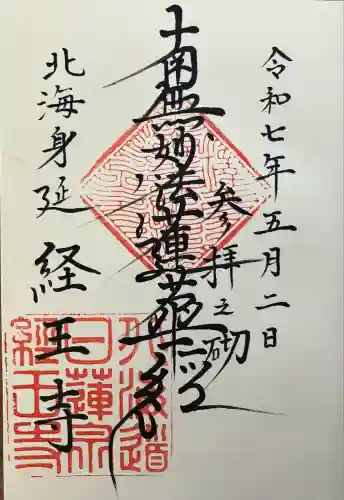 令和七年五月二日
参拝之砌
南無妙法蓮華経
北海身延
経王寺
北海道
日蓮宗
経王寺